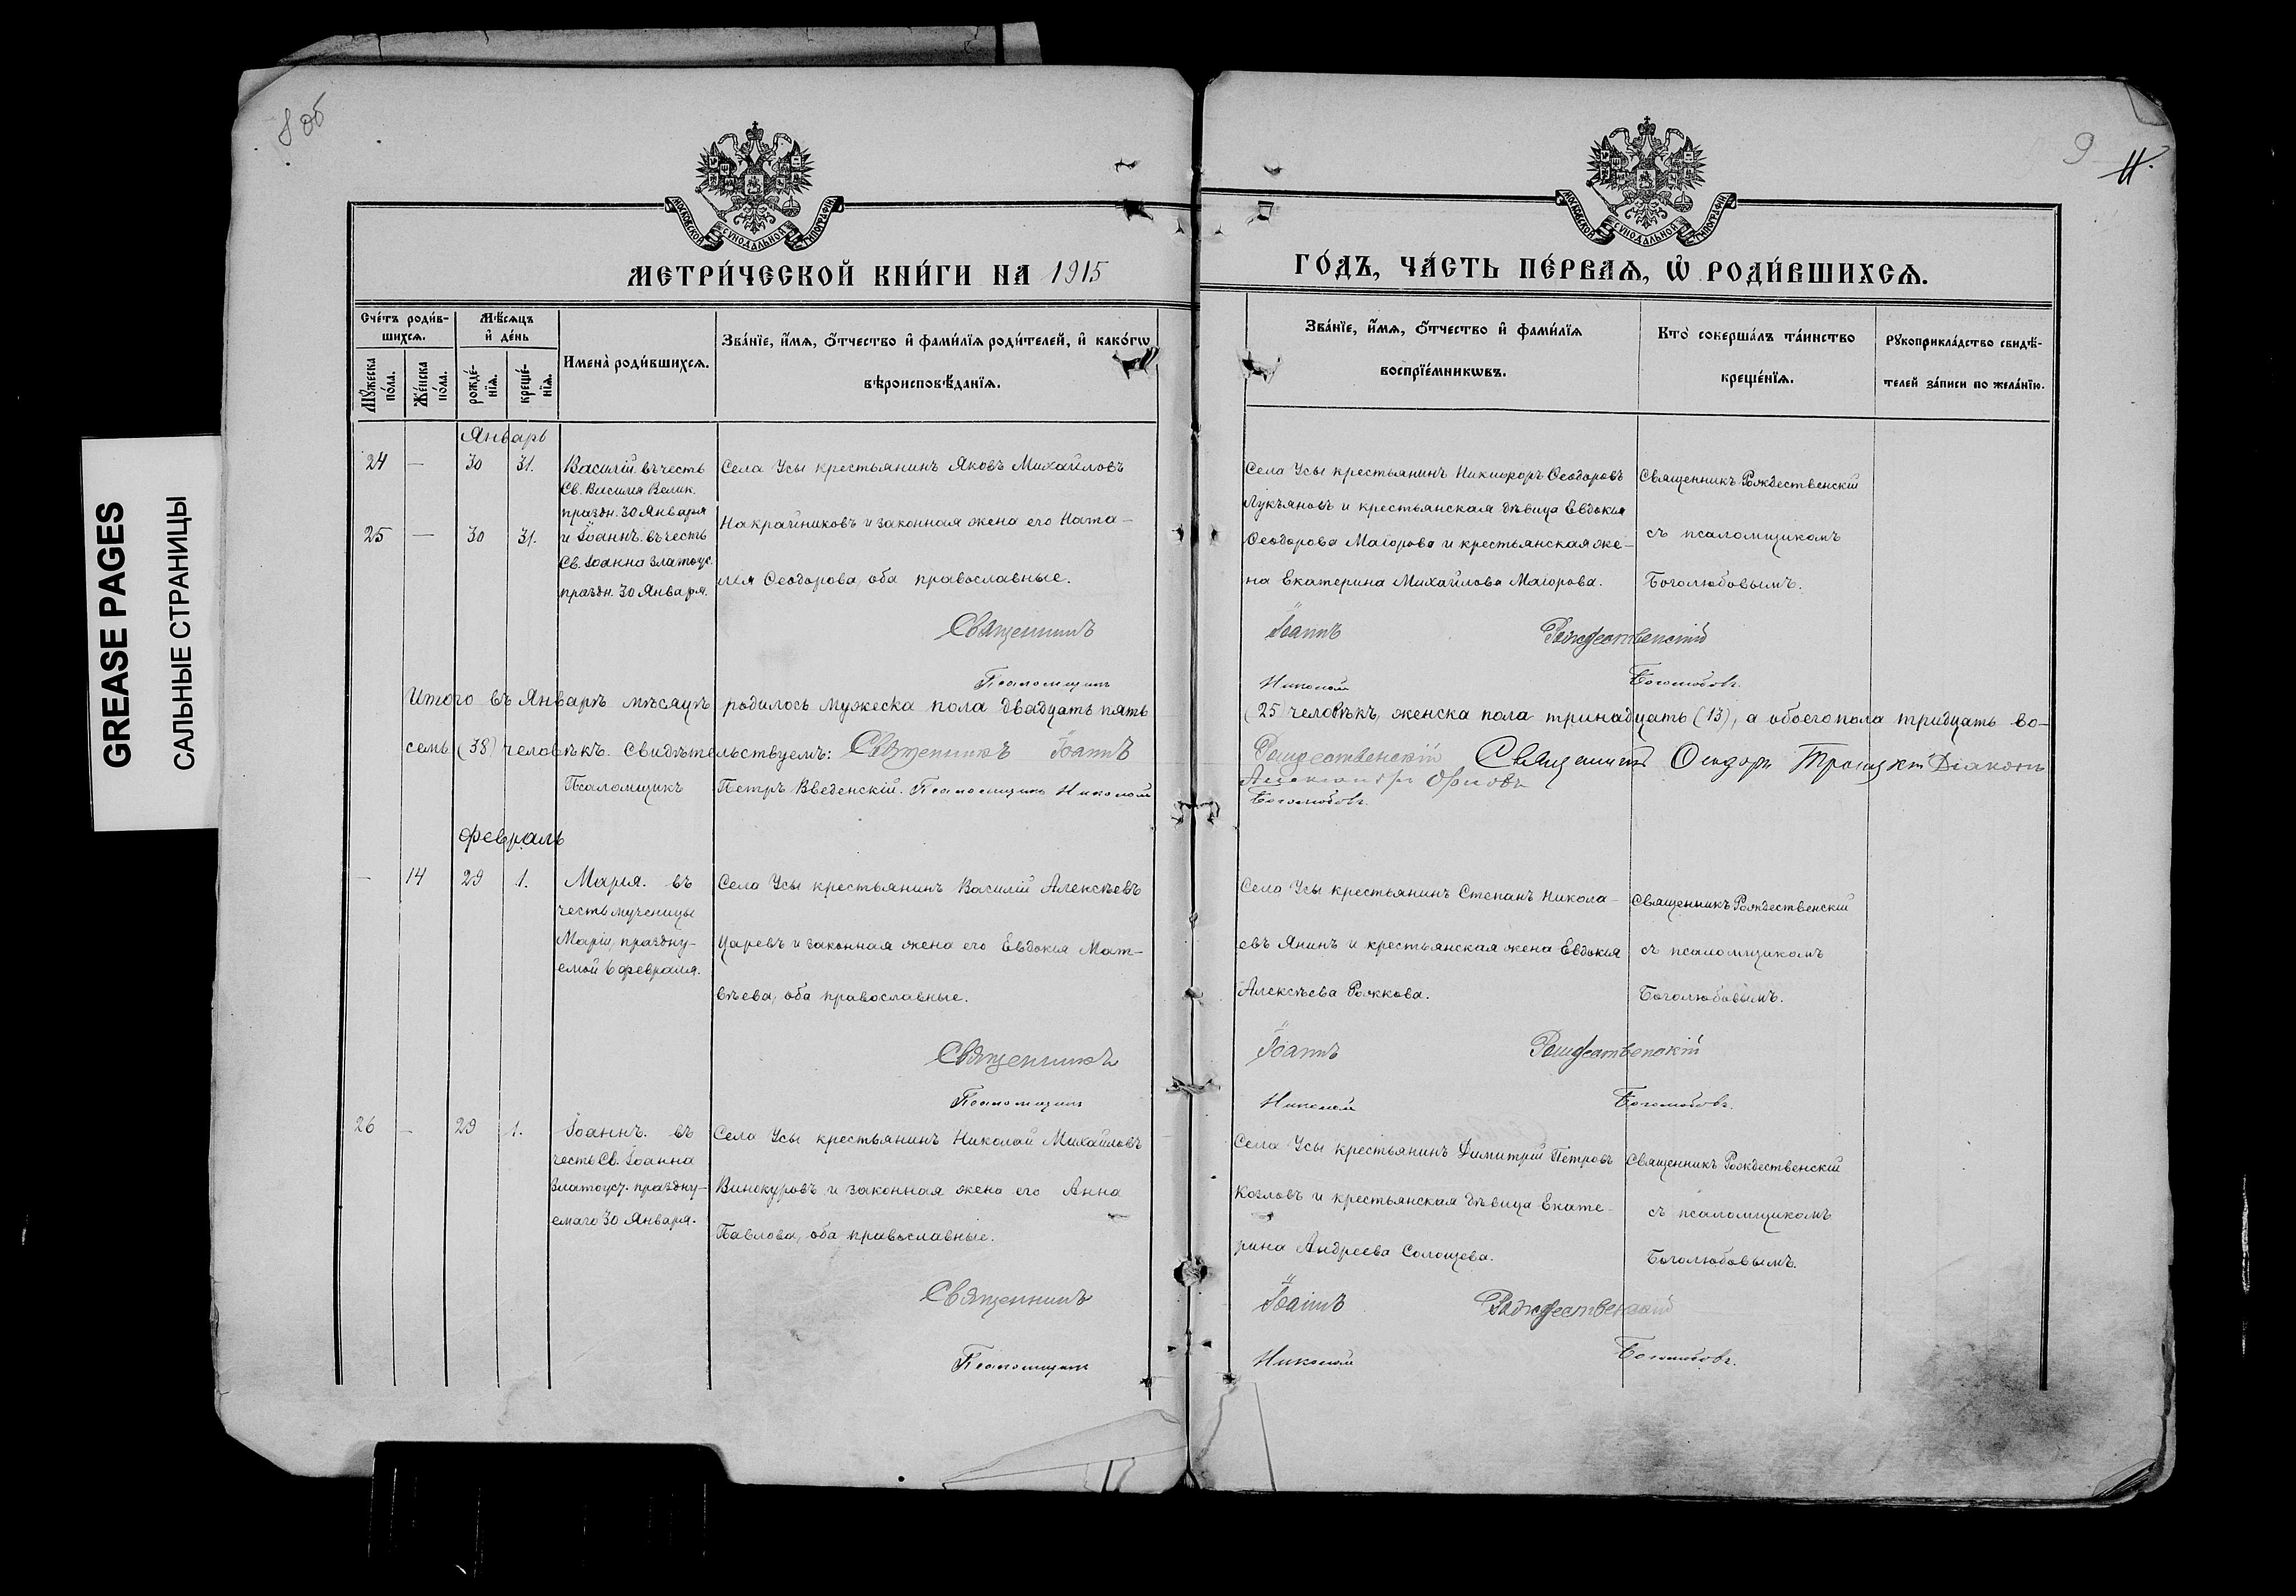 8 об
9
11.
GREASE PAGES
САЛЬНЫЕ СТРАНИЦЫ
МОСКОВСКОЙ СѴНОДАЛЬНОЙ ТИПОГРАФІИ
МЕТРИ́ЧЕСКОЙ КНИ́ГИ НА 1915
Сче́тъ роди́в-
шихсѧ.
Мѣ́сѧцъ
и҆ де́нь
Мꙋ́жеска
по́ла.
Же́нска
по́ла.
рожде́-
нїѧ.
креще́-
нїѧ.
Имена̀ роди́вшихсѧ.
Зва́нїе, и҆́мѧ, ѻ҆́тчество и҆ фами́лїѧ роди́телей, и҆ како́гѡ
вѣроисповѣ́данїѧ.
Январь
24 — 30 31. Василій. въ честь
Св. Василія Велик.
праздн. 30 Января
25 — 30 31. и Іоаннъ. въ честь
Св. Іоанна Златоус.
праздн. 30 Января.
Села Усы крестьянинъ Яковъ Михайловъ
Накрайниковъ и законная жена его Ната-
лія Ѳеодорова, оба православные.
Священникъ
Псаломщикъ
Итого въ Январѣ мѣсяцѣ родилось мужеска пола двадцать пять
семь (38) человѣкъ. Свидѣтельствуемъ: Священникъ Іоаннъ
Псаломщикъ Петръ Введенскій. Псаломщикъ Николай
Февраль
— 14 29 1. Марія. въ
честь мученицы
Маріи, праздну-
емой 6 февраля.
Села Усы крестьянинъ Василій Алексѣевъ
Царевъ и законная жена его Евдокія Мат-
вѣева, оба православные.
Священникъ
Псаломщикъ
26 — 29 1. Іоаннъ. въ
честь Св. Іоанна
Златоуст. праздну-
емаго 30 Января.
Села Усы крестьянинъ Николай Михайловъ
Винокуровъ и законная жена его Анна
Павлова, оба православные.
Священникъ
Псаломщикъ
МОСКОВСКОЙ СѴНОДАЛЬНОЙ ТИПОГРАФІИ
ГО́ДЪ, ЧА́СТЬ ПЕ́РВАѦ, Ѡ҆ РОДИ́ВШИХСѦ.
Зва́нїе, и҆́мѧ, ѻ҆́тчество и҆ фами́лїѧ
воспрїе́мникѡвъ.
Кто̀ соверша́лъ та́инство
креще́нїѧ.
Рꙋкоприкла́дство свидѣ́-
телей за́писи по жела́нїю.
Села Усы крестьянинъ Никифоръ Ѳеодоровъ
Лукъяновъ и крестьянская дѣвица Евдокія
Ѳеодорова Маіорова и крестьянская же-
на Екатерина Михайлова Маіорова.
Священникъ Рождественскій
съ псаломщикомъ
Боголюбовымъ.
Іоаннъ Рождественскій
Николай Боголюбовъ.
(25) человѣкъ, женска пола тринадцать (13), а обоего пола тридцать во-
Рождественскій Священникъ Ѳеодоръ Діаконъ
Александръ
Боголюбовъ.
Села Усы крестьянинъ Степанъ Никола-
евъ Янинъ и крестьянская жена Евдокія
Алексѣева Рожкова.
Священникъ Рождественскій
съ псаломщикомъ
Боголюбовымъ.
Іоаннъ Рождественскій
Николай Боголюбовъ.
Села Усы крестьянинъ Димитрій Петровъ
Козловъ и крестьянская дѣвица Екате-
рина Андреева Солощева.
Священникъ Рождественскій
съ псаломщикомъ
Боголюбовымъ.
Іоаннъ Рождественскій
Николай Боголюбовъ.